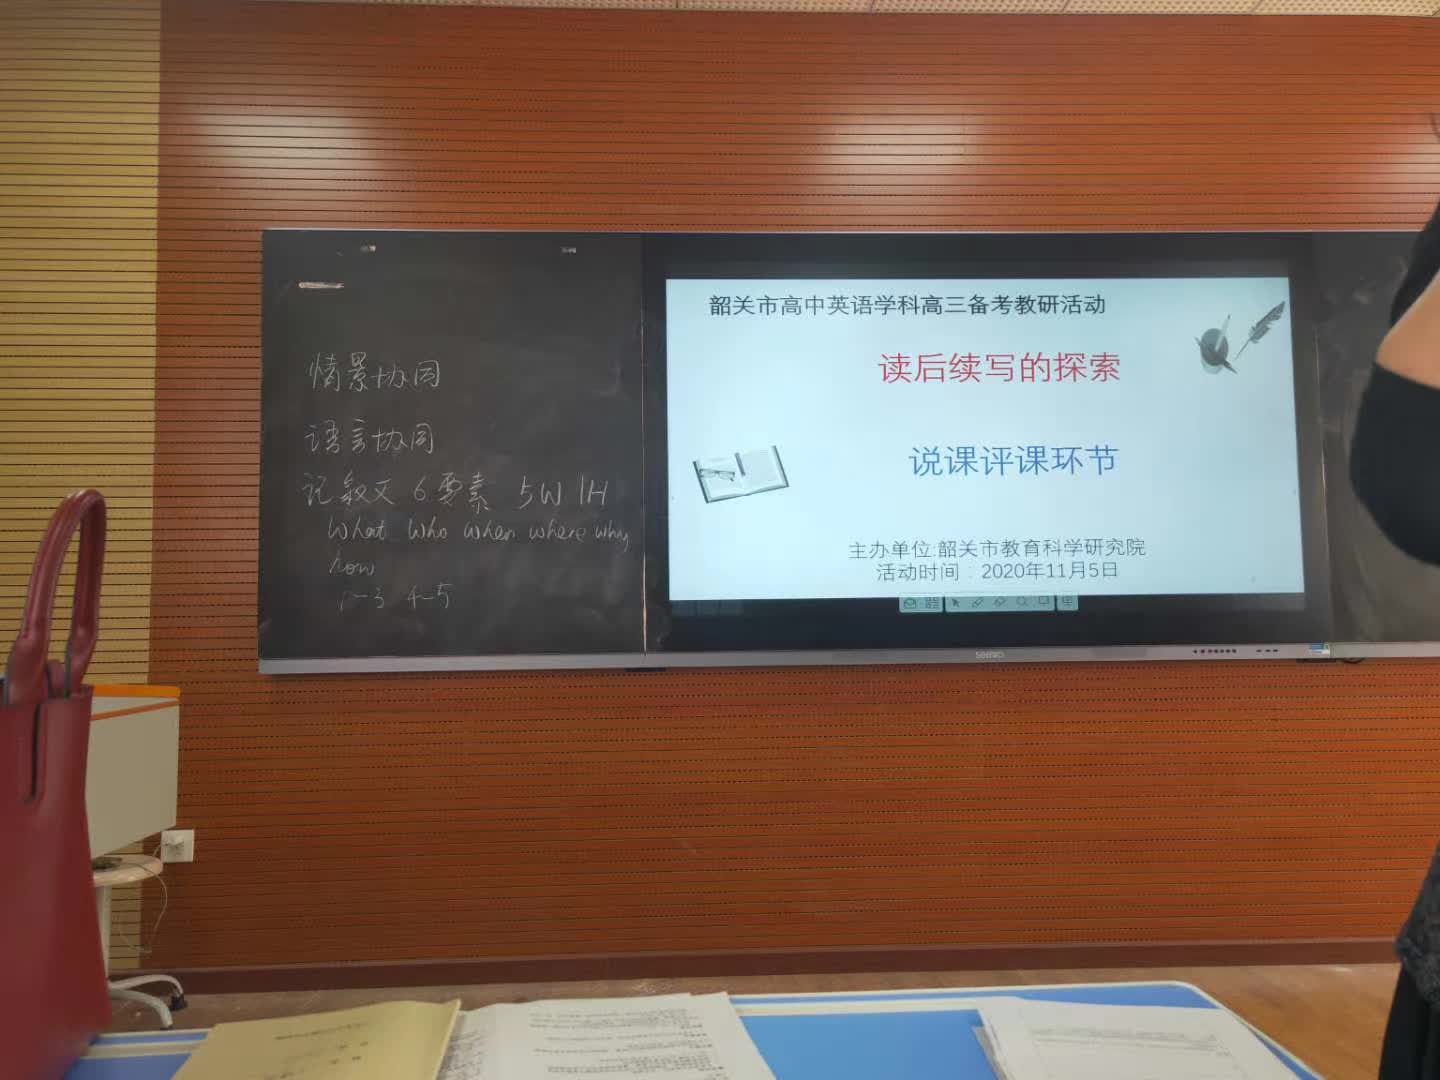 情景协同
语言协同
记叙文 6要素 5W 1H
What Who when where why
how
1-3 4-5
韶关市高中英语学科高三备考教研活动
读后续写的探索
说课评课环节
主办单位:韶关市教育科学研究院
活动时间：2020年11月5日
seewo